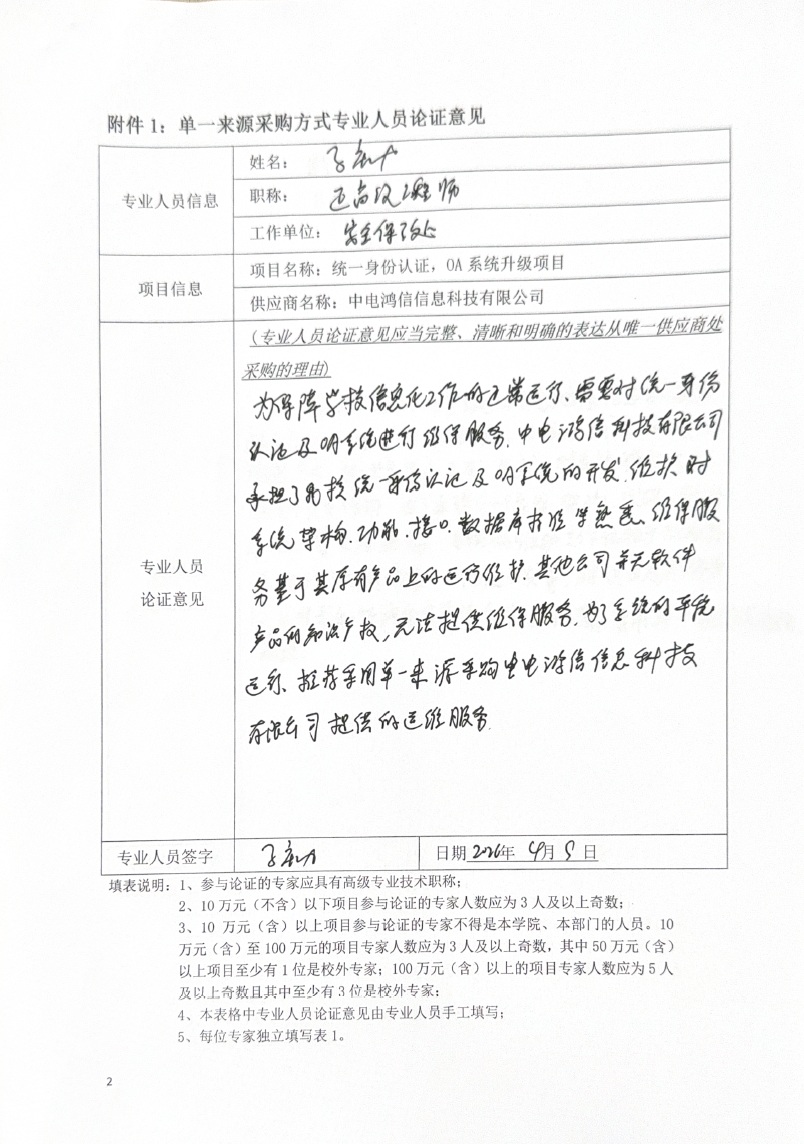 附件1：单一来源采购方式专业人员论证意见
专业人员信息
姓名：
职称： 正高级工程师
工作单位： 安全保卫处
项目信息
项目名称：统一身份认证，OA系统升级项目
供应商名称：中电鸿信信息科技有限公司
专业人员
论证意见
(专业人员论证意见应当完整、清晰和明确的表达从唯一供应商处
采购的理由)
为保障学校信息化工作的正常运行、需要对统一身份
认证及OA系统进行维保服务.中电鸿信科技有限公司
承担了我校统一身份认证及OA系统的开发.维护.对
系统架构.功能.接口.数据库非常熟悉、维保服
务基于其原有产品上的运行维护.其他公司并无软件
产品的知识产权,无法提供维保服务.为了系统的平稳
运行、推荐采用单一来源采购中电鸿信信息科技
有限公司提供的运维服务.
专业人员签字
日期2026年 4月5日
填表说明：1、参与论证的专家应具有高级专业技术职称；
2、10万元（不含）以下项目参与论证的专家人数应为3人及以上奇数；
3、10 万元（含）以上项目参与论证的专家不得是本学院、本部门的人员。10
万元（含）至100万元的项目专家人数应为3人及以上奇数，其中50万元（含）
以上项目至少有1位是校外专家；100万元（含）以上的项目专家人数应为5人
及以上奇数且其中至少有3位是校外专家；
4、本表格中专业人员论证意见由专业人员手工填写；
5、每位专家独立填写表1。
2